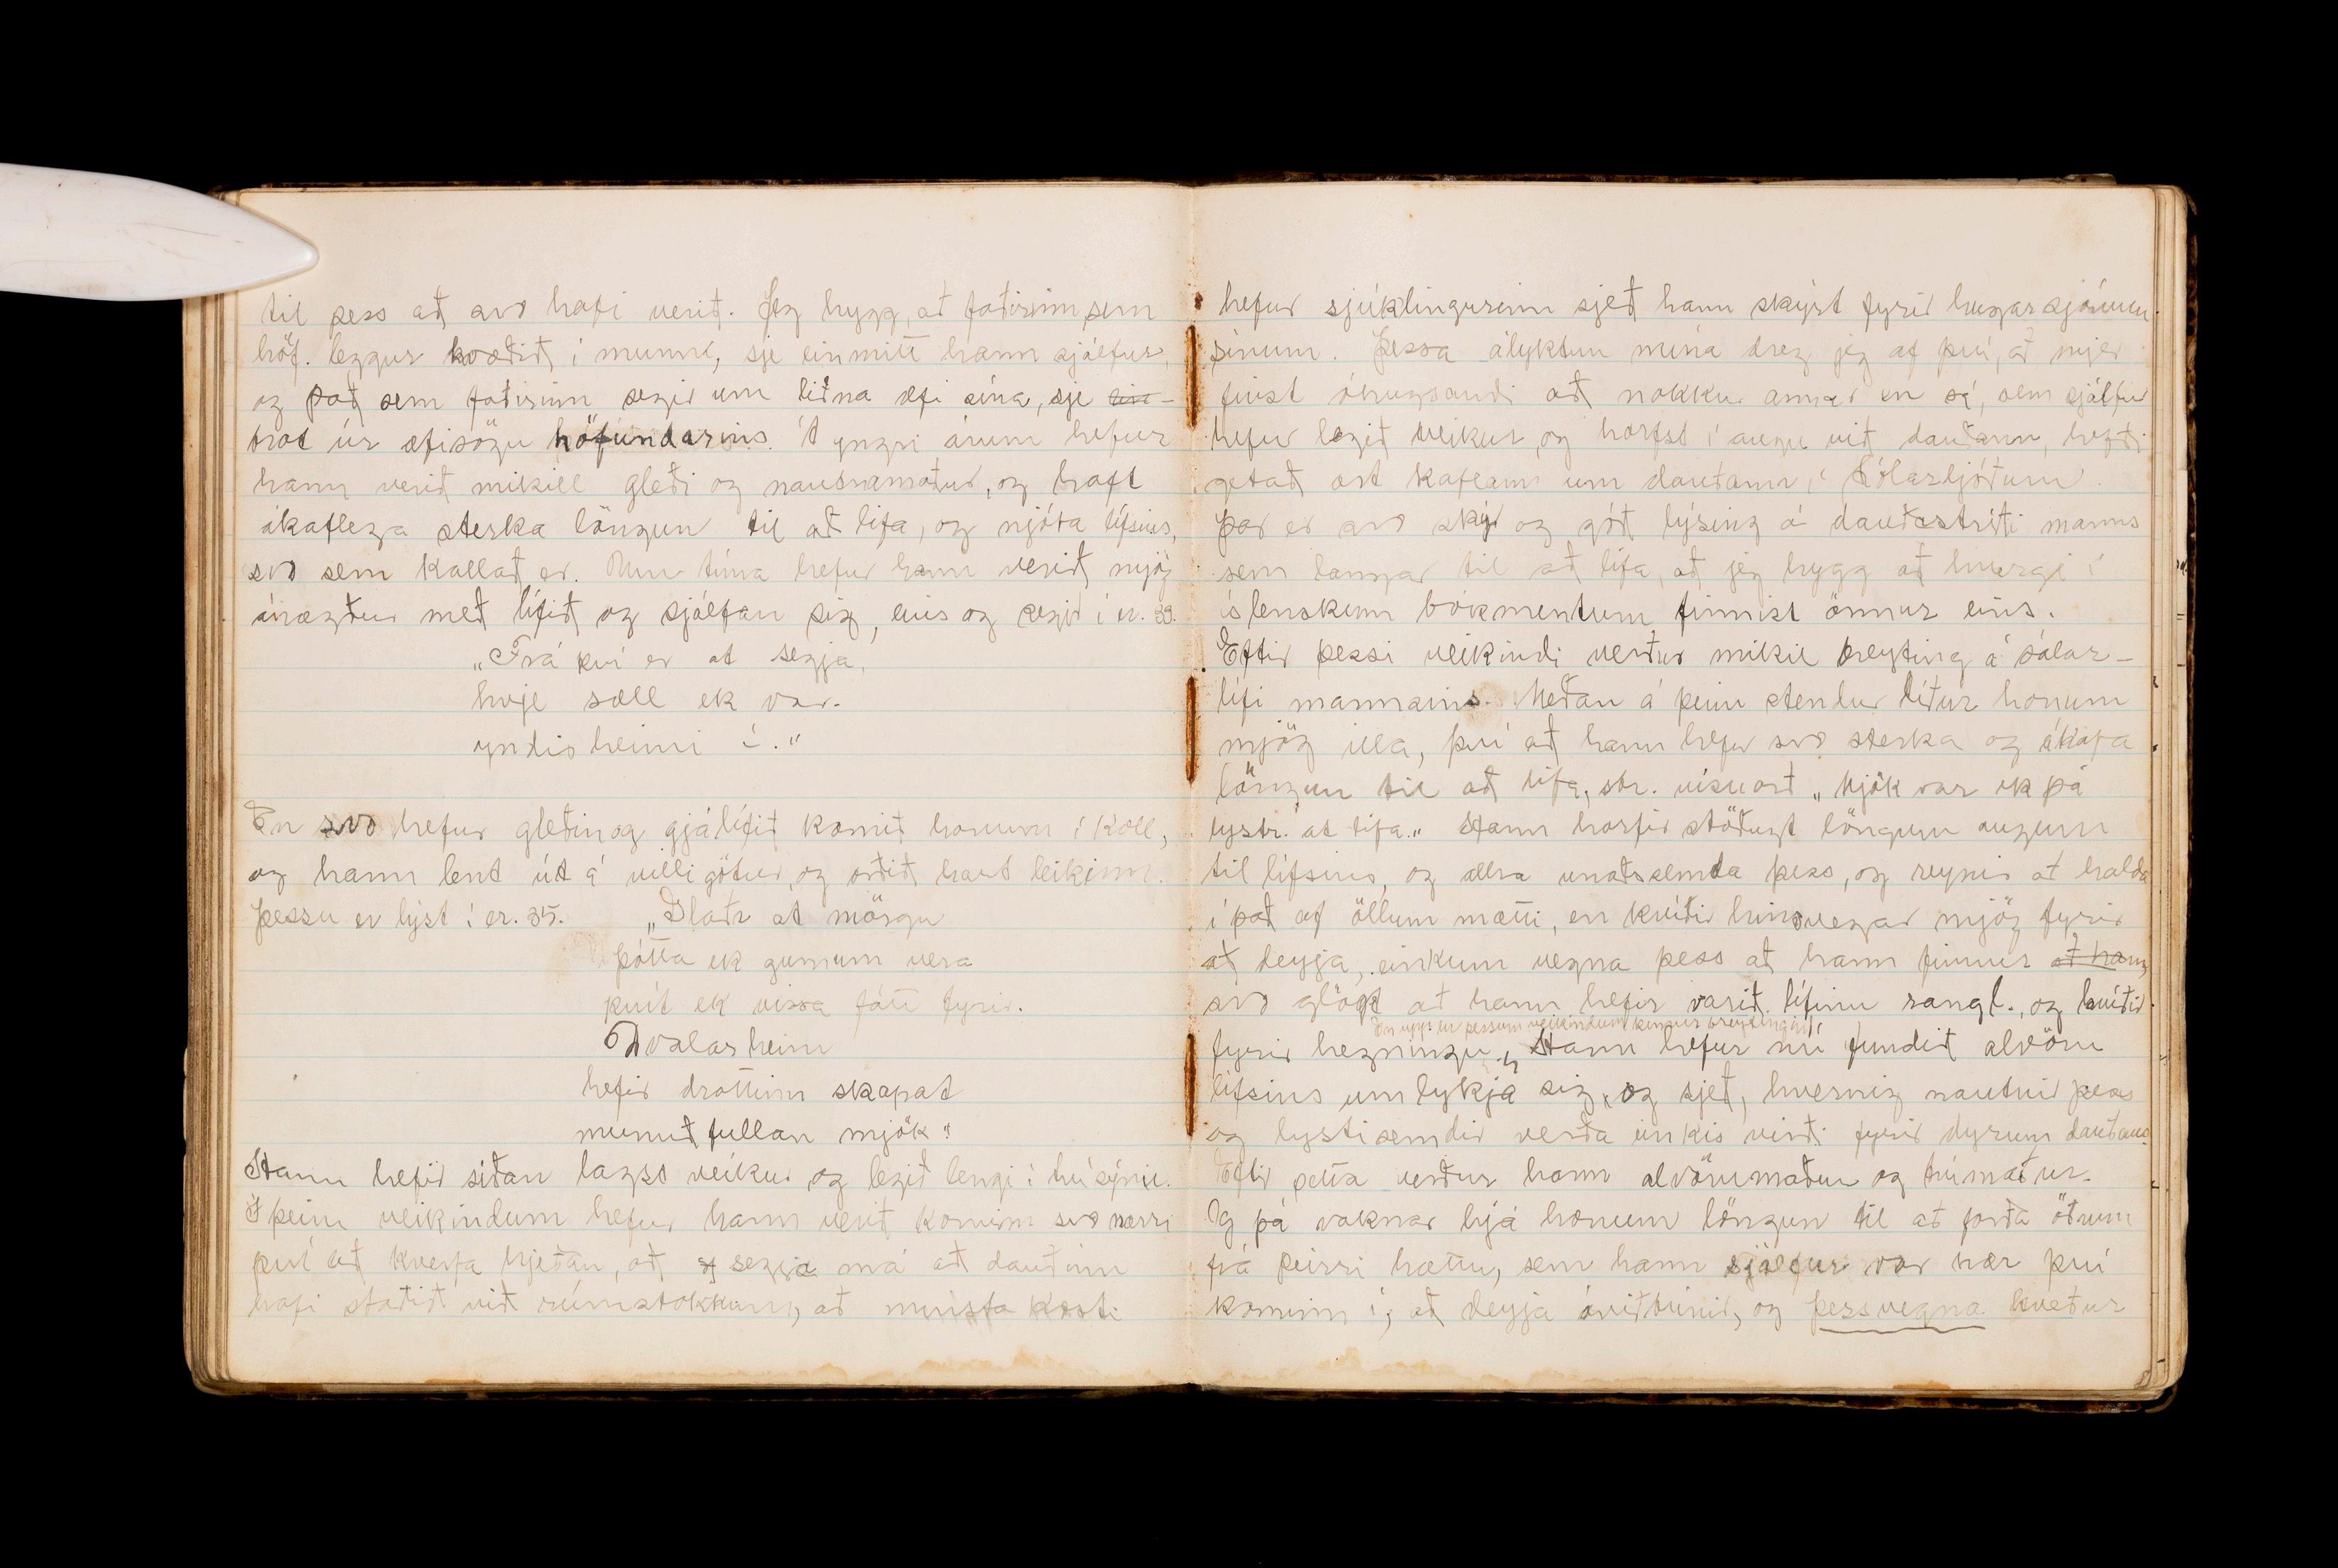 til þess að svo hafi verið. Jeg hygg, að faðirinn sem
höf. leggur kvæðið í munni, sje einmitt hann sjálfur,
og það sem faðirinn segir um liðna æfi sína, sje
brot úr æfisögu höfundarins. Á yngri árum hefur
hann verið mikill gleði og nautnamaður, og haft
ákaflega sterka löngun til að lifa, og njóta lífsins,
svo sem kallað er. Um tíma hefur hann verið mjög
ánægður með lífið og sjálfan sig, eins og segir í er. 33.
„Frá því er at segja,
hvje sæll ek var.
yndisheimi í.“
En svo hefur gleðin og gjálífið komið honum í koll,
og hann lent út á villigötur, og orðið hart leikinn.
Þessu er lýst í er. 35. „Blaðr at mörgu
þótta ek gumum vera
þvít ek vissa fátt fyrir.
Dvalarheim
hefir drottinn skapat
munuðfullan mjök“
Hann hefir síðan lagst veikur og legið lengi í tvísýnu.
Í þeim veikindum hefur hann verið kominn svo nærri
því að hverfa hjeðan, að segja má að dauðinn
hafi staðið við rúmstokkinn, að minsta kosti
hefur sjúklingurinn sjeð hann skýrt fyrir hugarsjónum
sínum. Þessa ályktun mína dreg jeg af því, að mjer
finst óhugsandi að nokkur annar en sá, sem sjálfur
hefur legið veikur, og horfst í augu við dauðann, hefði
getað ort kaflann um dauðann í Sólarljóðum.
Þar er svo skýr og góð lýsing á dauðastríði manns
sem langar til að lifa, að jeg hygg að hvergi í
íslenskum bókmentum finnist önnur eins.
Eftir þessi veikindi verður mikil breyting á sálar-
lífi mannsins. Meðan á þeim stendur líður honum
mjög illa, því að hann hefur svo sterka og ákafa
löngun til að lifa, sbr. vísuorð „Mjök var ek þá
lystr. at lifa.“ Hann horfir stöðugt löngum augum
til lífsins, og allra unaðssemda þess, og reynir at halda
í það af öllum mætti, en kvíðir hinsvegar mjög fyrir
að deyja, einkum vegna þess að hann finnur að hann
svo glögt að hann hefir varið lífinu rangl., og kvíðir
En upp úr þessum veikindum kemur breytingin!
fyrir hegningu. Hann hefur nú fundið alvöru
lífsins umlykja sig, og sjeð, hvernig nautnir þess
og lystisemdir verða einkis virði fyrir dyrum dauðans
Eftir þetta verður hann alvörumaður og trúmaður.
Og þá vaknar hjá honum löngun til að forða öðrum
frá þeirri hættu, sem hann sjálfur var nær því
kominn í, að deyja óviðbúinn, og þessvegna kveður